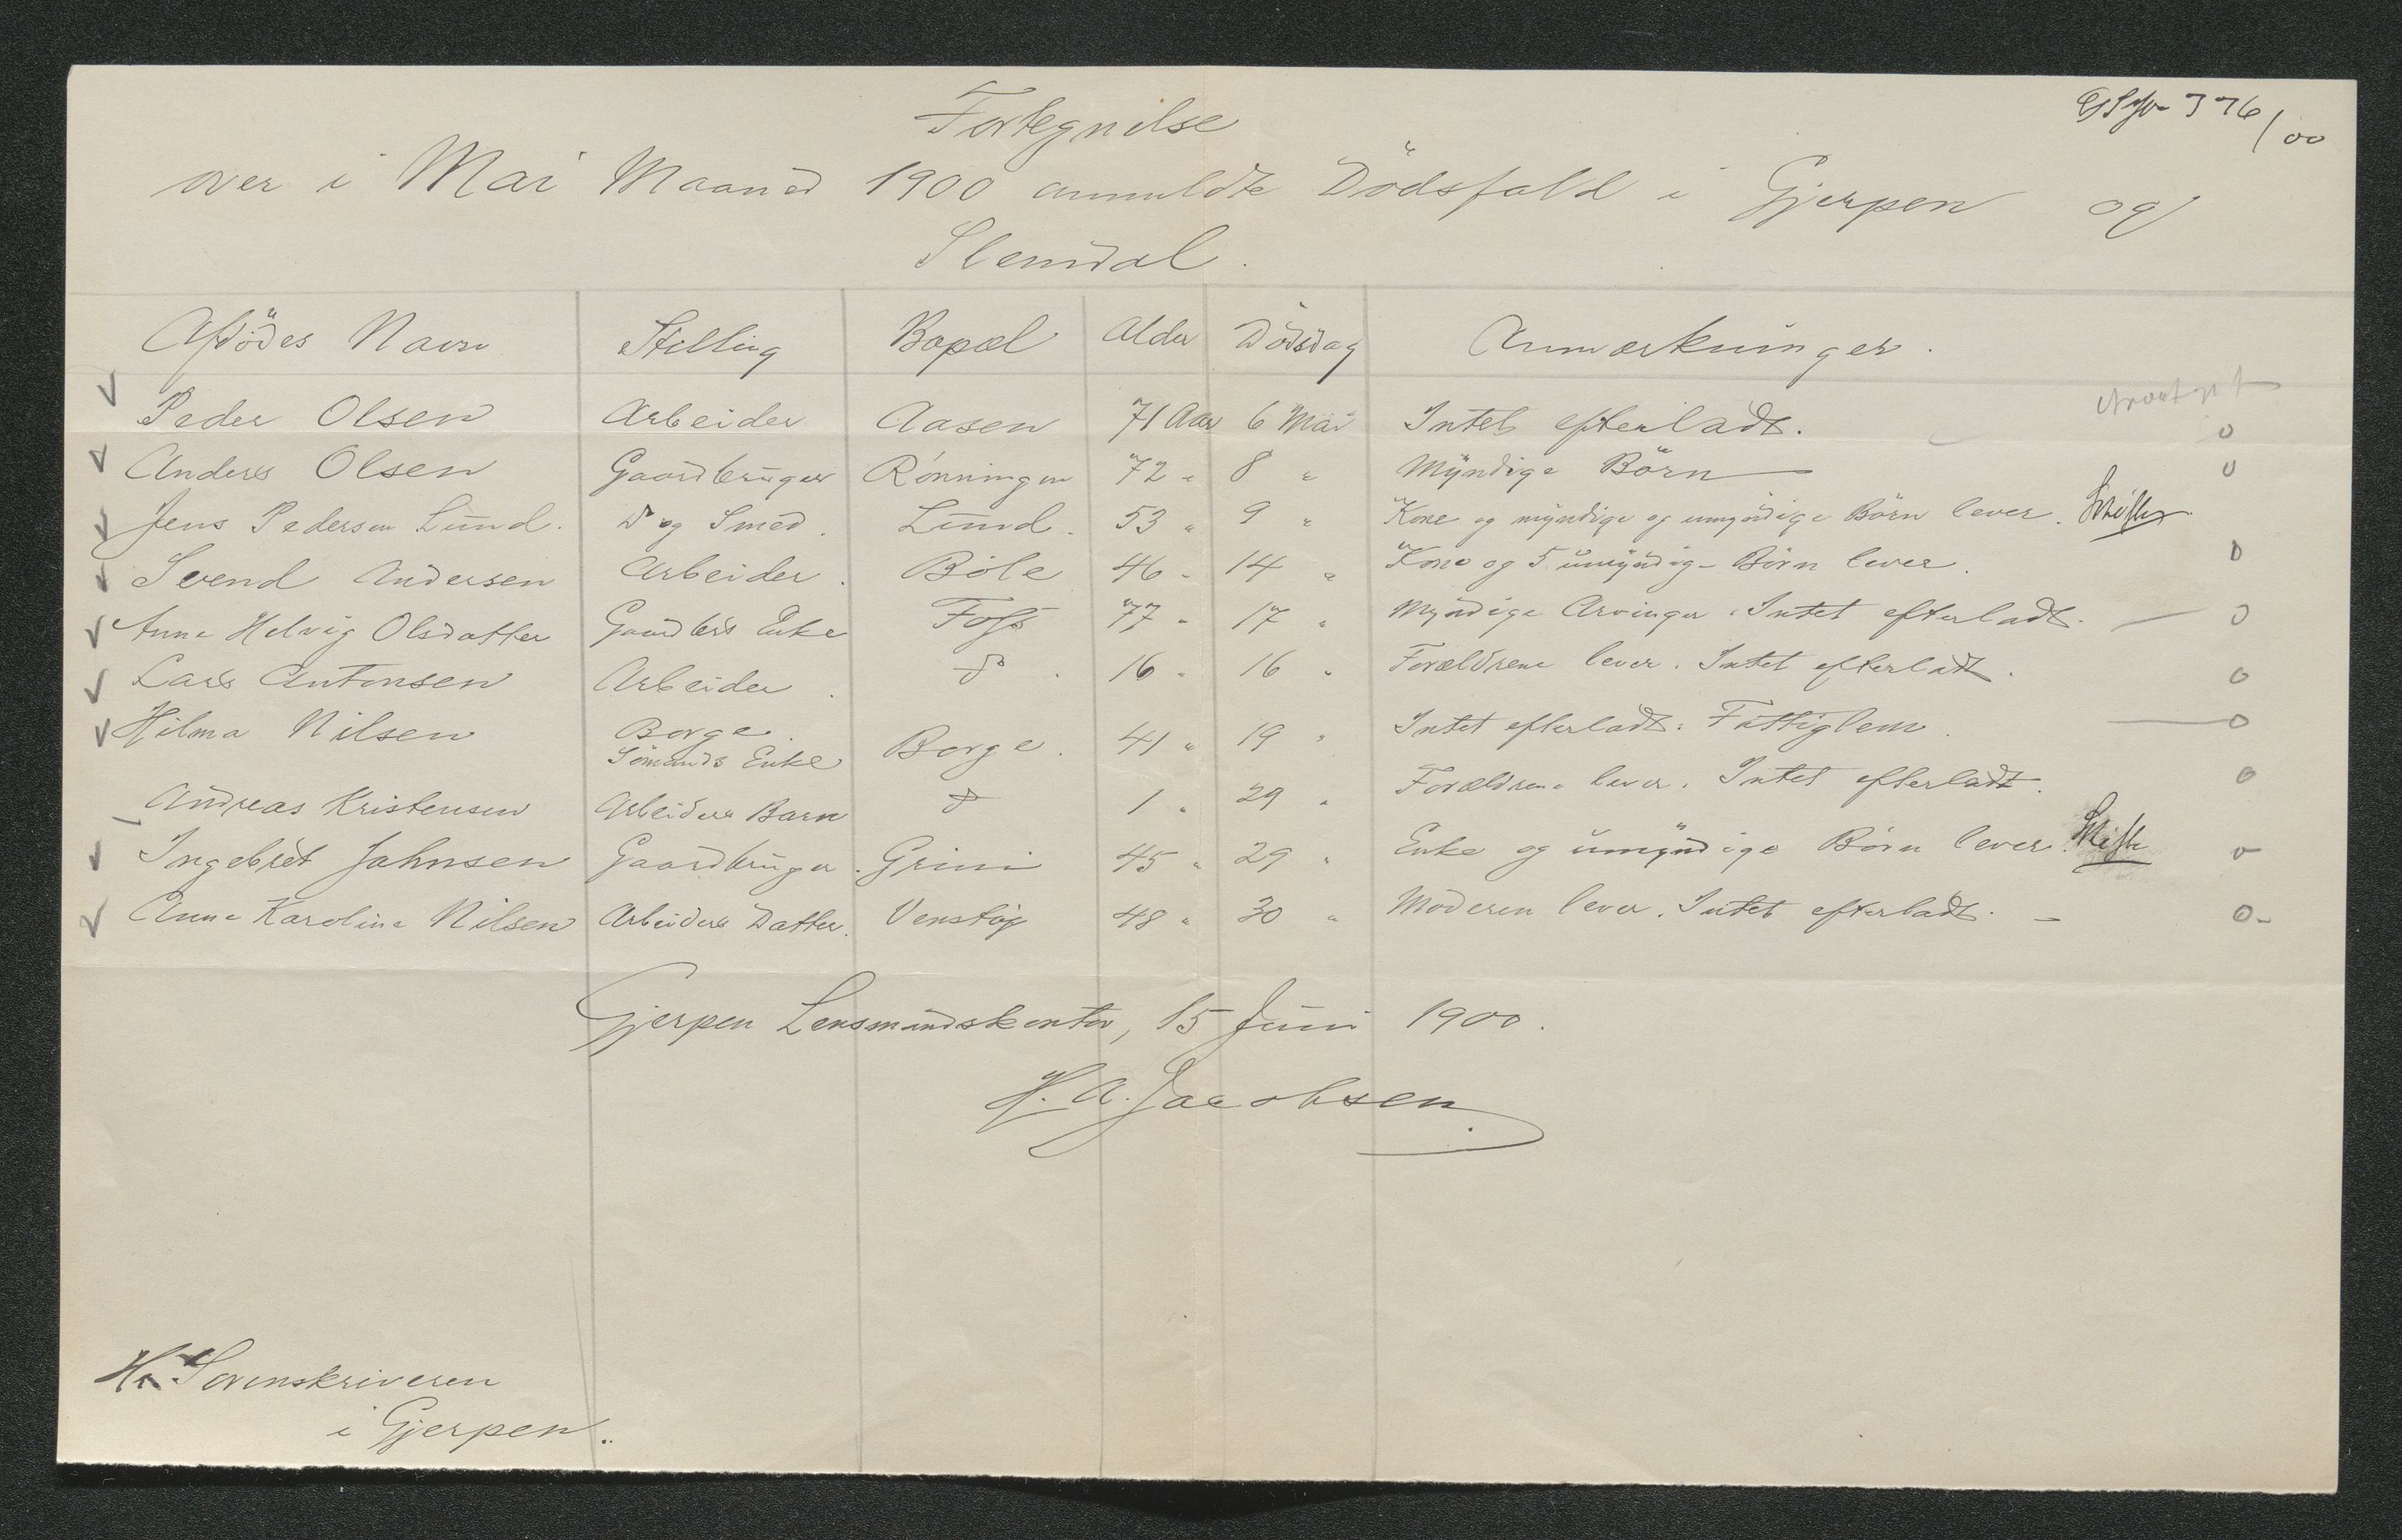 376/00
Fortegnelse
over i Mai Maaned 1900 anmeldte Dödsfald i Gjerpen og
Slemdal.
Afdödes Navn Stilling Bopæl Alder Dödsdag Anmærkninger.
Peder Olsen Arbeider Aasen 71 Aar 6 Mai Intet efterladt. 0
Anders Olsen Gaardbruger Rönningen 72 " 8 " Myndige Börn 0
Jens Pedersen Lund. Do og Smed. Lund. 53 " 9 " Kone og myndige og umyndige Börn lever. Skifte
Svend Andersen Arbeider. Böle 46 " 14 " Kone og 5 umyndig- Börn lever. 0
Anne Helvig Olsdatter Gaardbrs Enke Foss 77 " 17 " Myndige Arvinger. Intet efterladt. — 0
Lars Antonsen Arbeider. do. 16 " 16 " Forældrene lever. Intet efterladt. 0
Hilma Nilsen Borge. Sömands Enke Borge. 41 " 19 " Intet efterladt: Fattiglem. — 0
Andreas Kristensen Arbeiders Barn do 1 " 29 " Forældrene lever. Intet efterladt. 0
Ingebret Jahnsen Gaardbruger. Grini 45 " 29 " Enke og umyndige Börn lever. Skifte 0
Anne Karoline Nilsen Arbeiders Datter. Venstöp 48 " 30 " Moderen lever. Intet efterladt. — 0-
Gjerpen Lensmandskontor, 15 Juni 1900.
H. A. Jacobsen.
Hr Sorenskriveren
i Gjerpen.